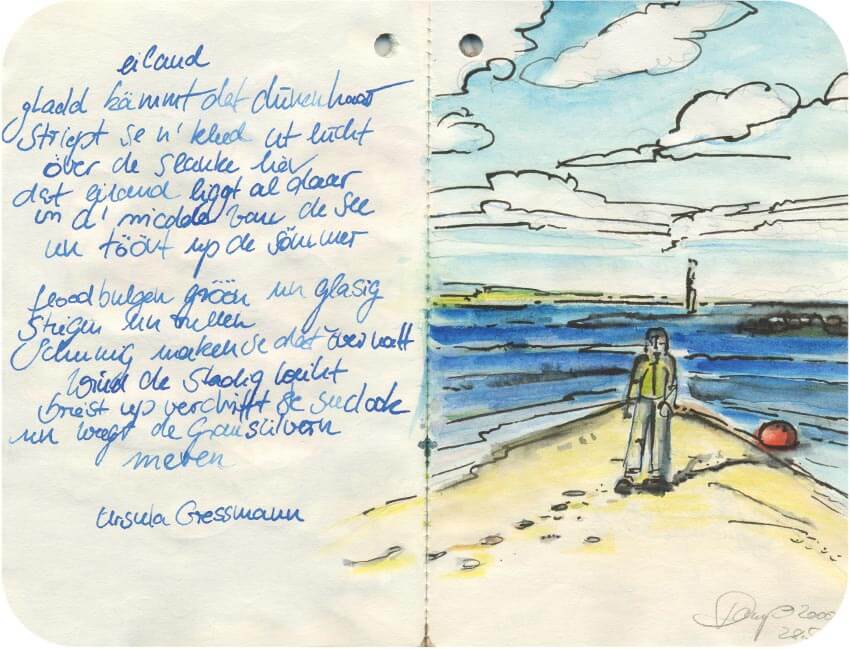 eiland
gladd kämmt dat dünenhaar
striept se n' kleed ut lücht
över de slanke
dat eiland liggt al daar
in d' midde van de see
un töövt up de sömmer
floodbulgen gröön un glasig
stiegen un rullen
schumig maken se dat över watt
wind de stadig weiht
breist up verdrifft se suclock
un weegt de grausülvern
meven
Ursula Gressmann
2000
28.5